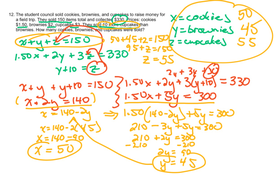 12. The student council sold cookies, brownies, and cupcakes to raise money for
a field trip. They sold 150 items total and collected $330. Prices: cookies
$1.50, brownies $2, cupcakes $3. They sold 10 more cupcakes than
brownies. How many cookies, brownies, and cupcakes were sold?
x = cookies 50
y = brownies 45
z = cupcakes 55
x+y+z=150
50+45+z=150
95+z=150
z=55
1.50x+2y+3z=330
y+10=z
2y+3y
x+y+y+10=150
1.50x+2y+3(y+10)=330
x+2y=140
1.50x+5y=300
x=140-2y
1.50(140-2y)+5y=300
x=140-2(45)
210-3y+5y=300
x=140-90
210+2y=300
-210 -210
x=50
2y=90
y=45